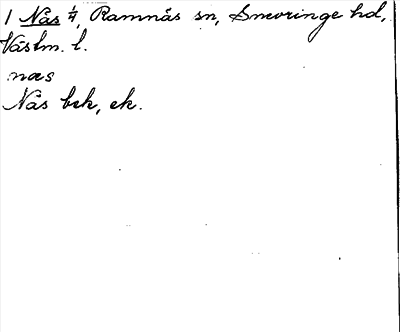 1 Nås 1/4, Ramnäs sn, Snevringe hd,
Västm. l.
næs
Nås bsk, ek.